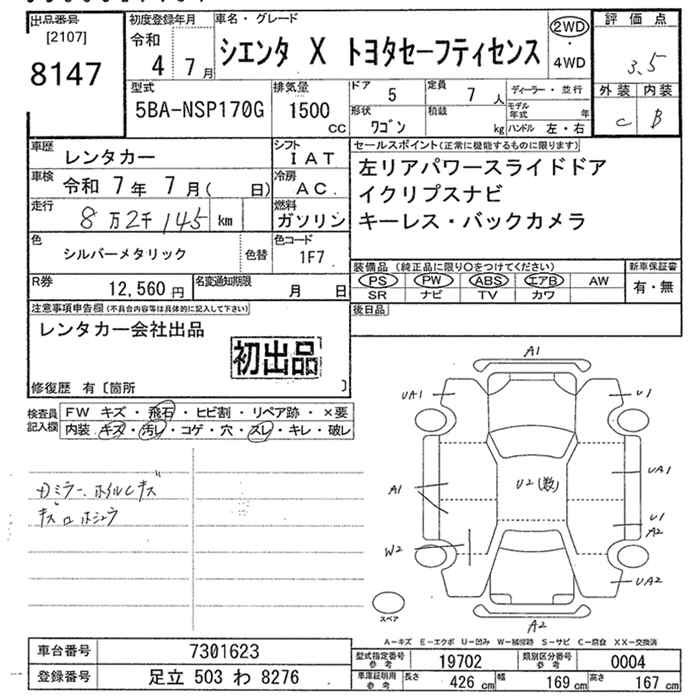 出品番号
[2107]
8147
初度登録年月
令和
4年 7月
車名・グレード
シエンタ X トヨタセーフティセンス
2WD
・
4WD
評価点
3.5
外装 内装
C B
型式
5BA-NSP170G
排気量
1500
CC
ドア
5
定員
7人
形状
ワゴン
積載
kg
ディーラー・並行
モデル年式 年
ハンドル 左・右
車歴
レンタカー
シフト
IAT
車検
令和 7年 7月( 日)
冷房
AC
走行
8万2千145 km
燃料
ガソリン
色
シルバーメタリック
色替
色コード
1F7
R券
12,560円
名変通知期限
月 日
セールスポイント(正常に機能するものに限ります)
左リアパワースライドドア
イクリプスナビ
キーレス・バックカメラ
装備品(純正品に限り○をつけてください)
PS PW ABS エアB AW
SR ナビ TV カワ
新車保証書
有・無
後日品
注意事項申告欄(不具合内容等は具体的に記入して下さい)
レンタカー会社出品
初出品
修復歴 有〔箇所 〕
検査員記入欄
FW キズ・飛石・ヒビ割・リペア跡・×要
内装 キズ・汚レ・コゲ・穴・スレ・キレ・破レ
ミラー、ホイルCキズ
キズ
A1
UA1
U1
A1
U2(数)
UA1
U1
A2
W2
UA2
A2
スペア
A-キズ E-エクボ U-凹み W-補修跡 S-サビ C-腐食 XX-交換済
車台番号
7301623
登録番号
足立 503 わ 8276
型式指定番号
参考
19702
類別区分番号
参考
0004
車庫証明用
参考
長さ
426 cm
幅
169 cm
高さ
167 cm